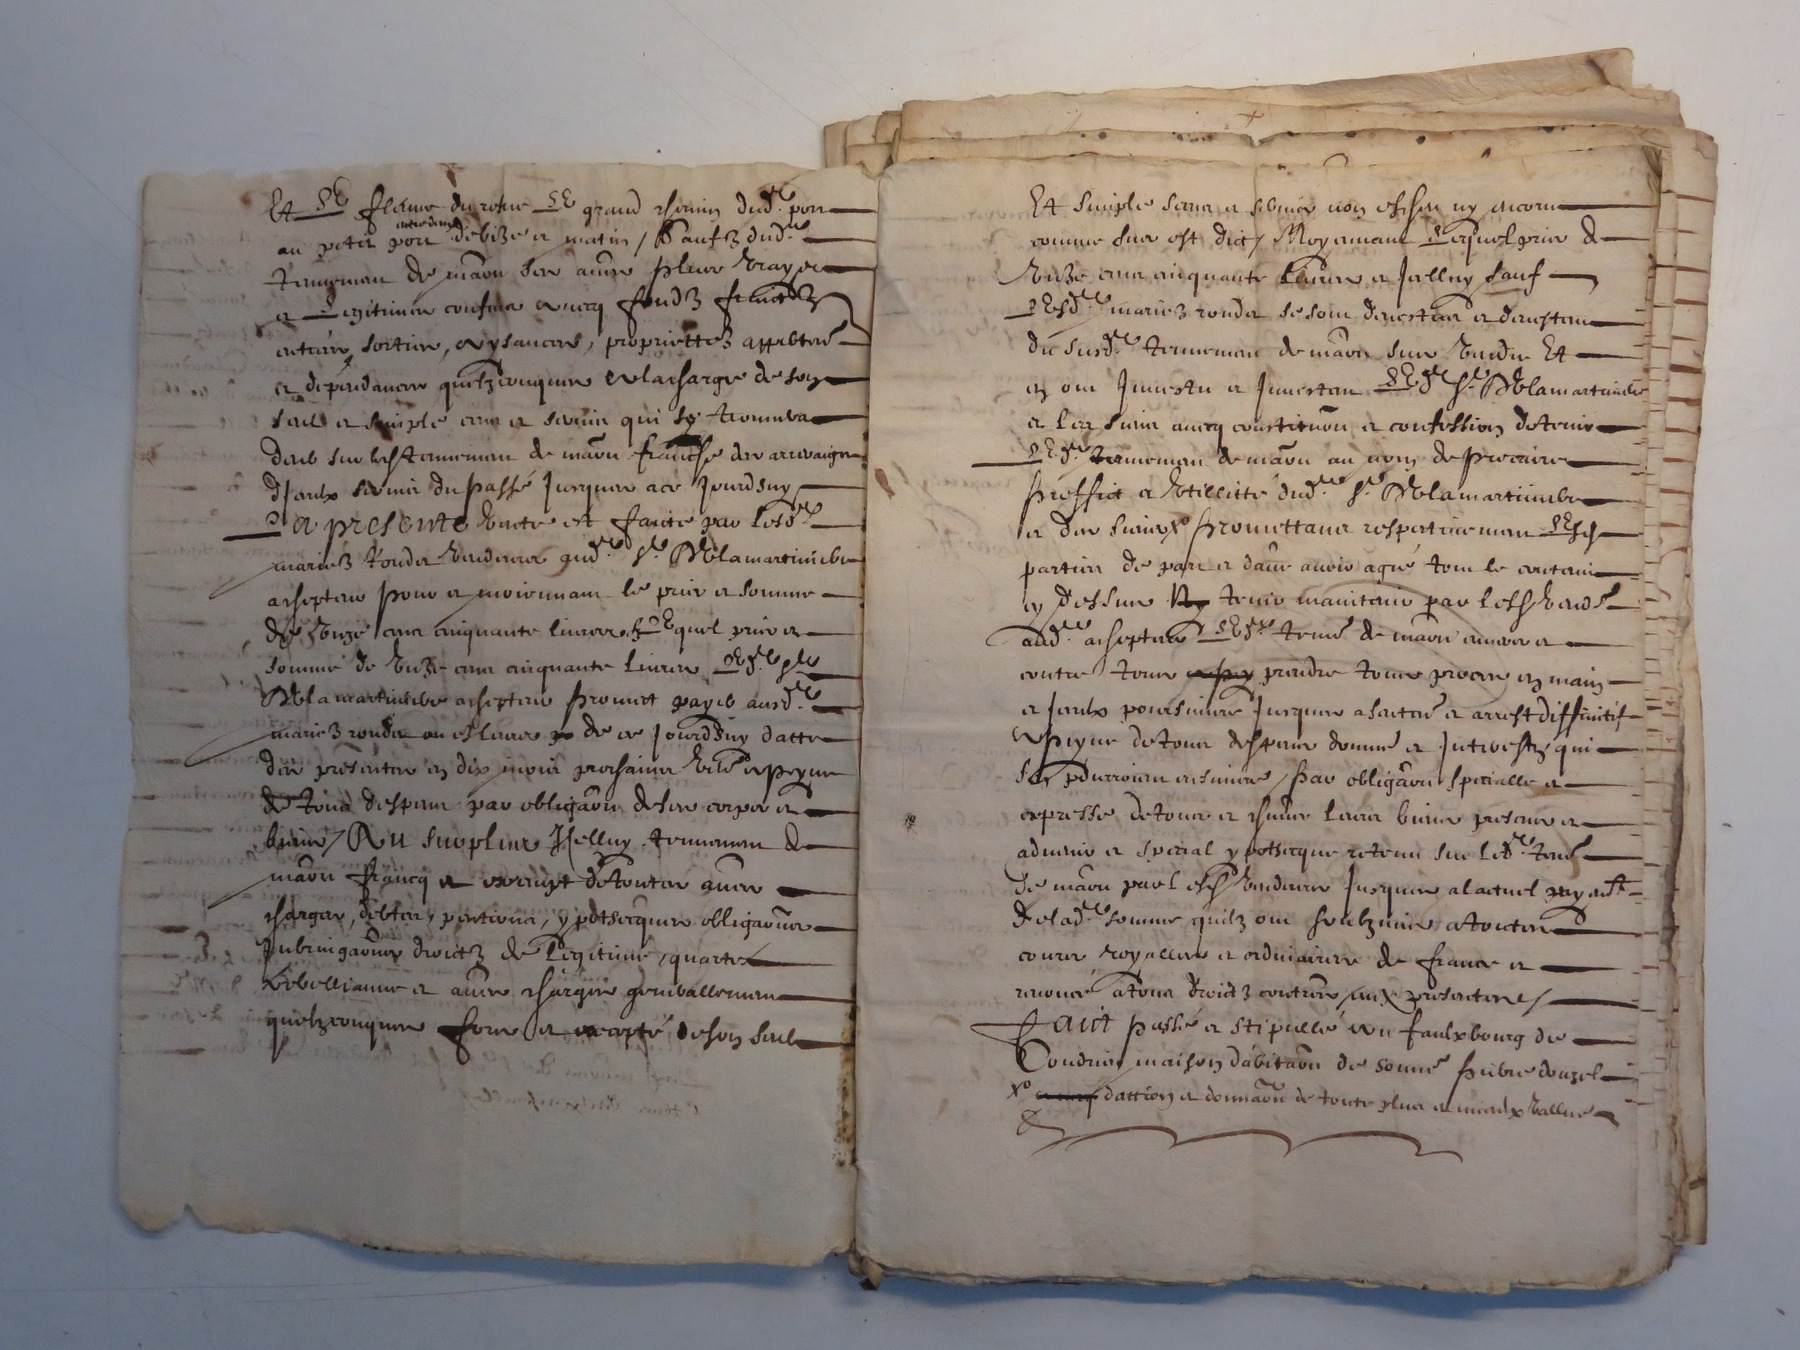 Et le fleuve du rosne le grand chemin dud. port
au petit port de bize et matin / Saufz dud.
tennemen de maon ses autres plus vrayes
et legitimes confins avecq fondz fruictz
entrées, sorties, aysances, propriettes appten
et dependances quelzconques et la charge de son
seul et simple cens et servis qui se trouvera
deub sur lesd. tennemen de maon franche des arreraiges
d'iceulx servis du passé jusques a ce jourdhuy
La presente vante est faicte par lesd.
mariez rondet vendeurs aud. sr. De la martiniere
achepteur pour et moiennant le prix et somme
de unze cens cinquante livres lequel prix et
somme de unze cens cinquante livres led. sr
De la martiniere achepteur promet payer ausd.
mariez rondet de ce jourdhuy datte
des presentes en dix mois prochains a peyne
de tous despens par obligaon de ses corps et
biens / Au surplus Icelluy tennemen de
maon francq et exempt de toutes autres
charges, debtes, pentions, ypothecques obligaons
subrrogaons droictz de legitime, quarte
trebellianne et autres charges generallemen
quelzconques fors et excepté de son seul
Et simple cens et servis non escheu ny encouru
comme sus est dict / Moyennant lequel prix de
unze cens cinquante livres et Icelluy sauf
lesd. mariez rondet se sont devestus et devestent
du susd. tennemen de maon sus vendu Et
en ont Investu et Investent led. sr. De la martiniere
et les siens avecq constituon et confession de tenir
led. tennemen de maon au nom de precaire
proffict et utillitté dud. sr. De la martiniere
et des siens xo promettans respectivemen lesd.
parties de part et dautre avoir agreé tout le contenu
cy dessus tenir maintenir par lesd. vend.
aud. achepteur led. tenn. de maon envers et
contre tous prendre tous proces en main
et Iceulx poursuivre Jusques a sentence et arrest diffinitif
a peyne de tous despens dommages et Interestz qui
sen pourroient ensuivre / par obligaon specialle et
expresse de tous et chuns leurs biens presens et
advenir et special ypothecque retenu sur led. tenn.
de maon par lesd. vendeurs Jusques a lactuel payent
de lad. somme quilz ont soubzmis a toutes
cours royalles et ordinaires de france et
renoncé a tous droictz contraires aux presentes /
Faict passé et stipullé au faulxbourg de
Condrieu maison dabitaon de honn. pierre douzel
xo dattion et donnaon de toute plus et mieulx vallue